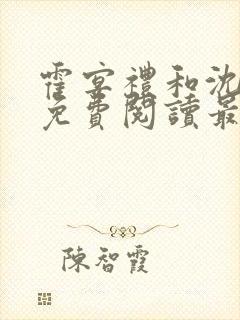 霍宴禮和沈
免費閱讀最
陳智霞